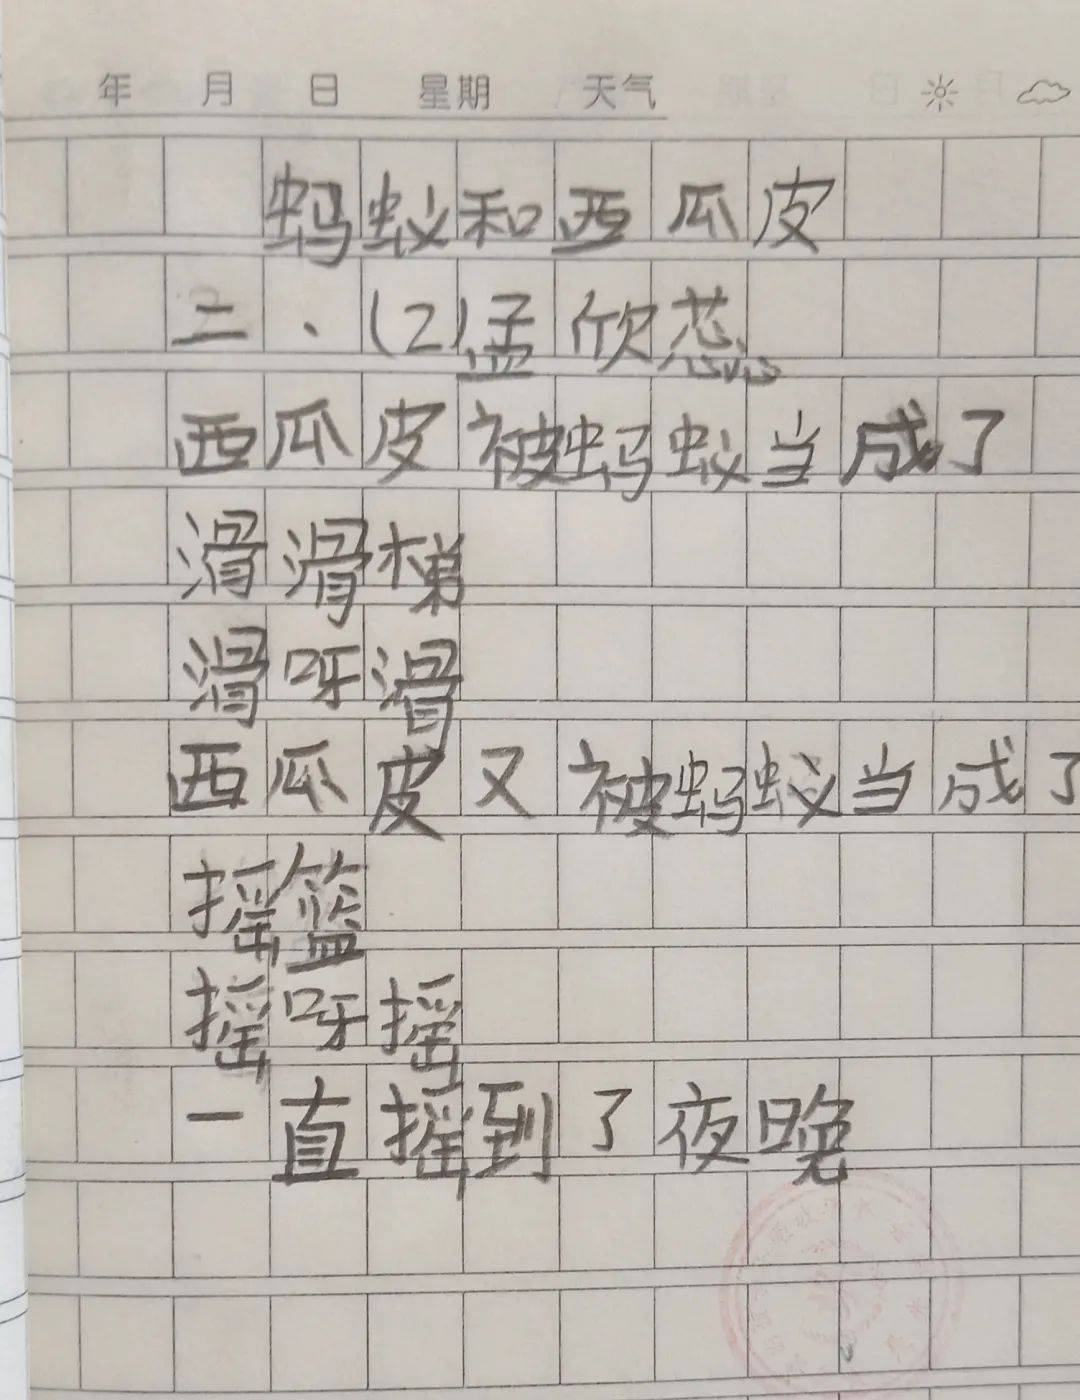 年 月 日 星期 天气
蚂蚁和西瓜皮
二、(2)孟欣蕊
西瓜皮被蚂蚁当成了
滑滑梯
滑呀滑
西瓜皮又被蚂蚁当成了
摇篮
摇呀摇
一直摇到了夜晚